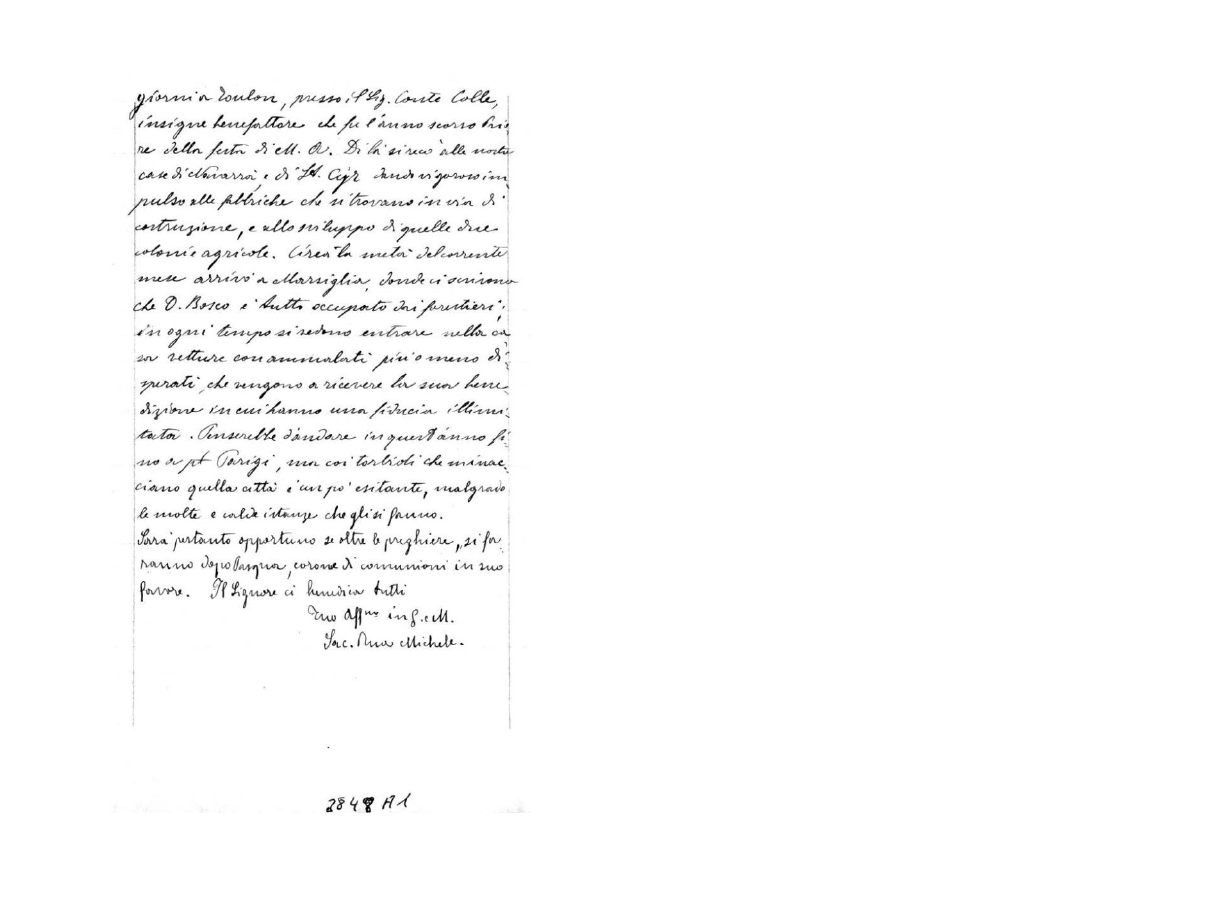 giorni a Toulon, presso il Sig. Conte Colle,
insigne benefattore che fu l'anno scorso Prio
re della festa di M. A. Di là si recò alle nostre
case di Navarra, e di St. Cyr dando vigoroso im
pulso alle fabbriche che si trovano in via di
costruzione, e allo sviluppo di quelle due
colonie agricole. Circa la metà del corrente
mese arrivò a Marsiglia, donde ci scrivono
che D. Bosco è tutto occupato dai forestieri;
in ogni tempo si vedono entrare nella ca
sa vetture con ammalati più o meno di
sperati, che vengono a ricevere la sua bene
dizione in cui hanno una fiducia illimi
tata. Penserebbe d'andare in quest'anno fi
no a Parigi, ma coi torbidi che minac
ciano quella città è un po' esitante, malgrado
le molte e calde istanze che gli si fanno.
Sarà pertanto opportuno se oltre le preghiere, si fa
ranno dopo Pasqua, corone di comunioni in suo
favore. Il Signore ci benedica tutti
Tuo Aff.mo in G. e M.
Sac. Rua Michele.
2848 A1